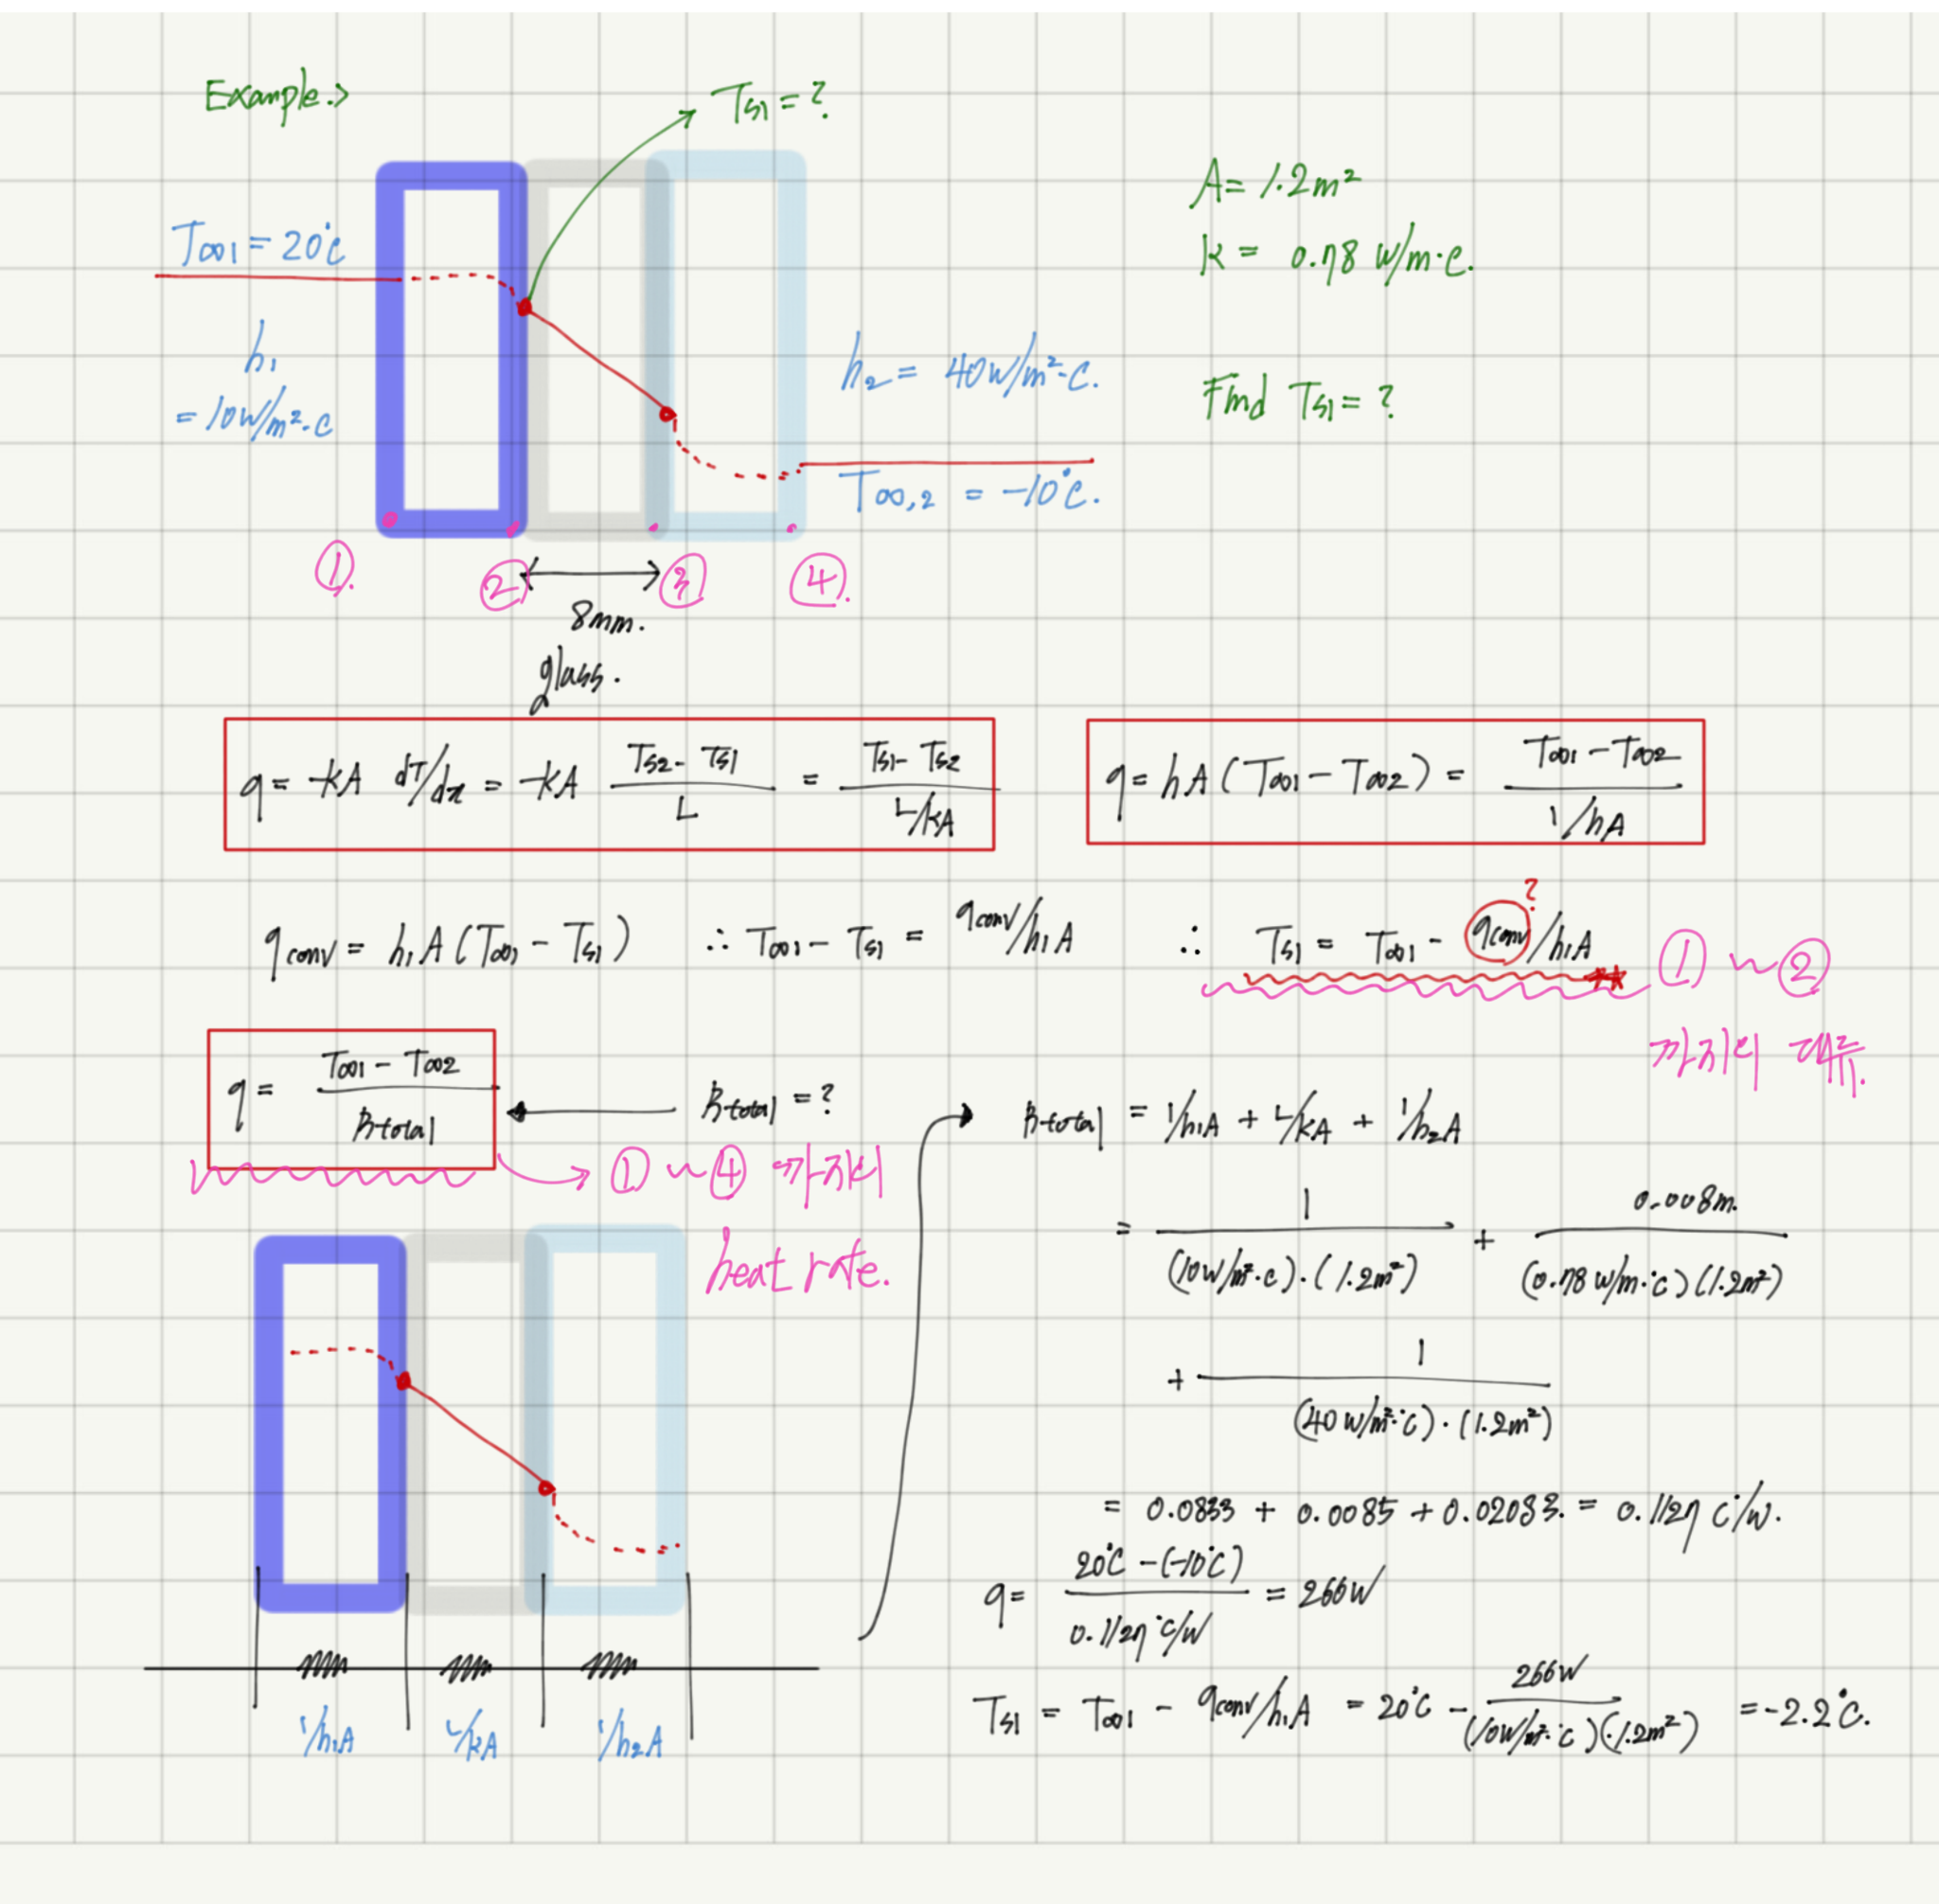 Example.>
Ts1 = ?
A = 1.2m²
T∞1 = 20°C
k = 0.78 W/m·c.
h1
= 10W/m²·c
h2 = 40W/m²·c.
Find Ts1 = ?
T∞,2 = -10°C.
①. ② ③ ④.
8mm.
glass.
q = -kA dT/dx = -kA (Ts2 - Ts1)/L = (Ts1 - Ts2)/(L/kA)
q = hA (T∞1 - T∞2) = (T∞1 - T∞2)/(1/hA)
qconv = h1A (T∞1 - Ts1) ∴ T∞1 - Ts1 = qconv/h1A ∴ Ts1 = T∞1 - qconv/h1A
?
① ~ ②
까지의
q = (T∞1 - T∞2)/Rtotal
Rtotal = ?
① ~ ④ 까지의
heat rate.
Rtotal = 1/h1A + L/kA + 1/h2A
= 1/((10W/m²·c)·(1.2m²)) + 0.008m./((0.78 W/m·°c)(1.2m²))
+ 1/((40 W/m²·°c)·(1.2m²))
= 0.0833 + 0.0085 + 0.02083. = 0.1127 °C/W.
q = (20°C - (-10°C))/(0.1127 °C/W) = 266W
Ts1 = T∞1 - qconv/h1A = 20°C - 266W/((10W/m²·°c)(1.2m²)) = -2.2°C.
1/h1A L/kA 1/h2A